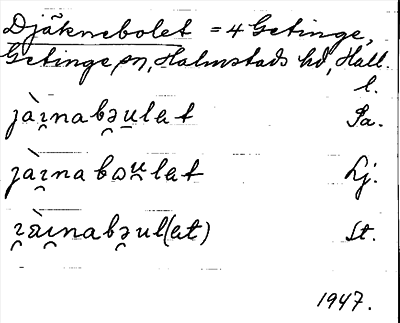 Djäknebolet = 4 Getinge,
Getinge sn, Halmstads hd, Hall.
l.
jàı̯nabə̯u̯lɐt Pa.
jàı̯nabɷu̯lɐt Lj.
ı̯àı̯nabə̯ul(ɐt) St.
1947.